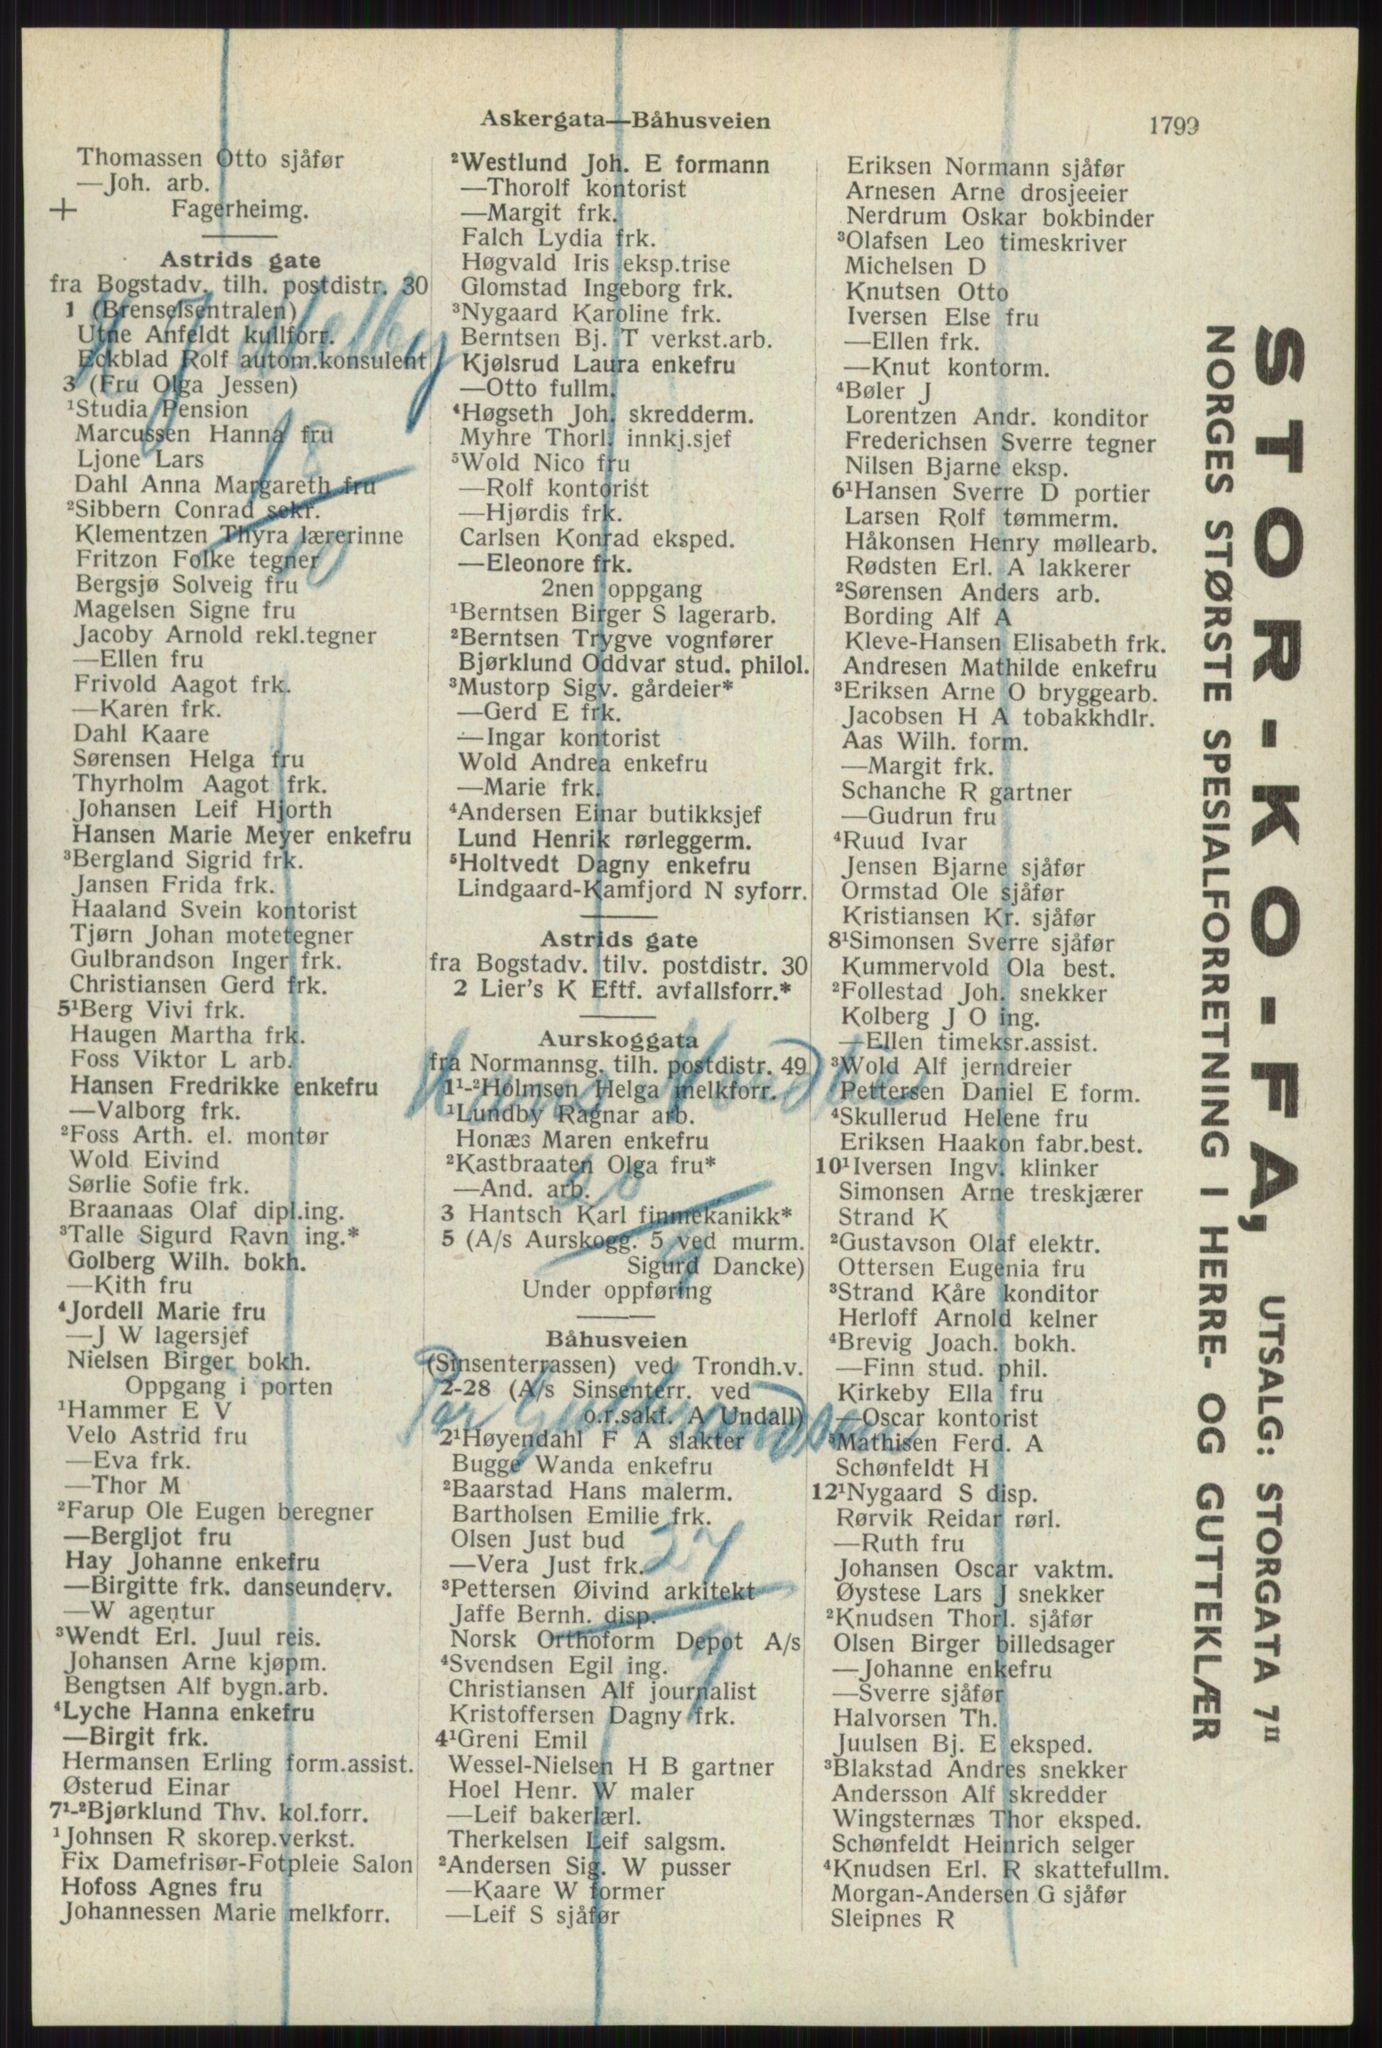 Askergata—Båhusveien
1799
Thomassen Otto sjåfør
—Joh. arb.
+ Fagerheimg.
Astrids gate
fra Bogstadv. tilh. postdistr. 30
1 (Brenselsentralen)
Utne Anfeldt kullforr.
Eckblad Rolf autom.konsulent
3 (Fru Olga Jessen)
¹Studia Pension
Marcussen Hanna fru
Ljone Lars
Dahl Anna Margareth fru
²Sibbern Conrad sekr.
Klementzen Thyra lærerinne
Fritzon Folke tegner
Bergsjø Solveig fru
Magelsen Signe fru
Jacoby Arnold rekl.tegner
—Ellen fru
Frivold Aagot frk.
—Karen frk.
Dahl Kaare
Sørensen Helga fru
Thyrholm Aagot frk.
Johansen Leif Hjorth
Hansen Marie Meyer enkefru
³Bergland Sigrid frk.
Jansen Frida frk.
Haaland Svein kontorist
Tjørn Johan motetegner
Gulbrandson Inger frk.
Christiansen Gerd frk.
5¹Berg Vivi frk.
Haugen Martha frk.
Foss Viktor L arb.
Hansen Fredrikke enkefru
—Valborg frk.
²Foss Arth. el. montør
Wold Eivind
Sørlie Sofie frk.
Braanaas Olaf dipl.ing.
³Talle Sigurd Ravn ing.*
Golberg Wilh. bokh.
—Kith fru
⁴Jordell Marie fru
—J W lagersjef
Nielsen Birger bokh.
Oppgang i porten
¹Hammer E V
Velo Astrid fru
—Eva frk.
—Thor M
²Farup Ole Eugen beregner
—Bergljot fru
Hay Johanne enkefru
—Birgitte frk. danseunderv.
—W agentur
³Wendt Erl. Juul reis.
Johansen Arne kjøpm.
Bengtsen Alf bygn.arb.
⁴Lyche Hanna enkefru
—Birgit frk.
Hermansen Erling form.assist.
Østerud Einar
7¹-²Bjørklund Thv. kol.forr.
¹Johnsen R skorep.verkst.
Fix Damefrisør-Fotpleie Salon
Hofoss Agnes fru
Johannessen Marie melkforr.
²Westlund Joh. E formann
—Thorolf kontorist
—Margit frk.
Falch Lydia frk.
Høgvald Iris eksp.trise
Glomstad Ingeborg frk.
³Nygaard Karoline frk.
Berntsen Bj. T verkst.arb.
Kjølsrud Laura enkefru
—Otto fullm.
⁴Høgseth Joh. skredderm.
Myhre Thorl. innkj.sjef
⁵Wold Nico fru
—Rolf kontorist
—Hjørdis frk.
Carlsen Konrad eksped.
—Eleonore frk.
2nen oppgang
¹Berntsen Birger S lagerarb.
²Berntsen Trygve vognfører
Bjørklund Oddvar stud. philol.
³Mustorp Sigv. gårdeier*
—Gerd E frk.
—Ingar kontorist
Wold Andrea enkefru
—Marie frk.
⁴Andersen Einar butikksjef
Lund Henrik rørleggerm.
⁵Holtvedt Dagny enkefru
Lindgaard-Kamfjord N syforr.
Astrids gate
fra Bogstadv. tilv. postdistr. 30
2 Lier's K Eftf. avfallsforr.*
Aurskoggata
fra Normannsg. tilh. postdistr. 49
1¹-²Holmsen Helga melkforr.
¹Lundby Ragnar arb.
Honæs Maren enkefru
²Kastbraaten Olga fru*
—And. arb.
3 Hantsch Karl finmekanikk*
5 (A/s Aurskogg. 5 ved murm.
Sigurd Dancke)
Under oppføring
Båhusveien
(Sinsenterrassen) ved Trondh.v.
2-28 (A/s Sinsenterr. ved
o.r.sakf. A Undall)
2¹Høyendahl F A slakter
Bugge Wanda enkefru
²Baarstad Hans malerm.
Bartholsen Emilie frk.
Olsen Just bud
—Vera Just frk.
³Pettersen Øivind arkitekt
Jaffe Bernh. disp.
Norsk Orthoform Depot A/s
⁴Svendsen Egil ing.
Christiansen Alf journalist
Kristoffersen Dagny frk.
4¹Greni Emil
Wessel-Nielsen H B gartner
Hoel Henr. W maler
—Leif bakerlærl.
Therkelsen Leif salgsm.
²Andersen Sig. W pusser
—Kaare W former
—Leif S sjåfør
Eriksen Normann sjåfør
Arnesen Arne drosjeeier
Nerdrum Oskar bokbinder
³Olafsen Leo timeskriver
Michelsen D
Knutsen Otto
Iversen Else fru
—Ellen frk.
—Knut kontorm.
⁴Bøler J
Lorentzen Andr. konditor
Frederichsen Sverre tegner
Nilsen Bjarne eksp.
6¹Hansen Sverre D portier
Larsen Rolf tømmerm.
Håkonsen Henry møllearb.
Rødsten Erl. A lakkerer
²Sørensen Anders arb.
Bording Alf A
Kleve-Hansen Elisabeth frk.
Andresen Mathilde enkefru
³Eriksen Arne O bryggearb.
Jacobsen H A tobakkhdlr.
Aas Wilh. form.
—Margit frk.
Schanche R gartner
—Gudrun fru
⁴Ruud Ivar
Jensen Bjarne sjåfør
Ormstad Ole sjåfør
Kristiansen Kr. sjåfør
8¹Simonsen Sverre sjåfør
Kummervold Ola best.
²Follestad Joh. snekker
Kolberg J O ing.
—Ellen timeksr.assist.
³Wold Alf jerndreier
Pettersen Daniel E form.
⁴Skullerud Helene fru
Eriksen Haakon fabr.best.
10¹Iversen Ingv. klinker
Simonsen Arne treskjærer
Strand K
²Gustavson Olaf elektr.
Ottersen Eugenia fru
³Strand Kåre konditor
Herloff Arnold kelner
⁴Brevig Joach. bokh.
—Finn stud. phil.
Kirkeby Ella fru
—Oscar kontorist
⁵Mathisen Ferd. A
Schønfeldt H
12¹Nygaard S disp.
Rørvik Reidar rørl.
—Ruth fru
Johansen Oscar vaktm.
Øystese Lars J snekker
²Knudsen Thorl. sjåfør
Olsen Birger billedsager
—Johanne enkefru
—Sverre sjåfør
Halvorsen Th.
Juulsen Bj. E eksped.
³Blakstad Andres snekker
Andersson Alf skredder
Wingsternæs Thor eksped.
Schønfeldt Heinrich selger
⁴Knudsen Erl. R skattefullm.
Morgan-Andersen G sjåfør
Sleipnes R
STOR-KO-FA, UTSALG: STORGATA 7"
NORGES STØRSTE SPESIALFORRETNING I HERRE- OG GUTTEKLÆR